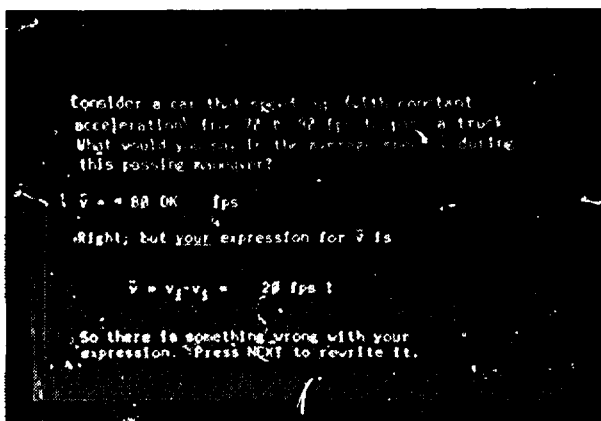 Consider a car that speeds up (with constant
acceleration) from 70 to 90 fps to pass a truck.
What would you say is the average speed v̄ during
this passing maneuver?
v̄ = 80 OK fps
Right, but your expression for v̄ is
v̄ = vf-vi = 20 fps !
So there is something wrong with your
expression. Press NEXT to rewrite it.